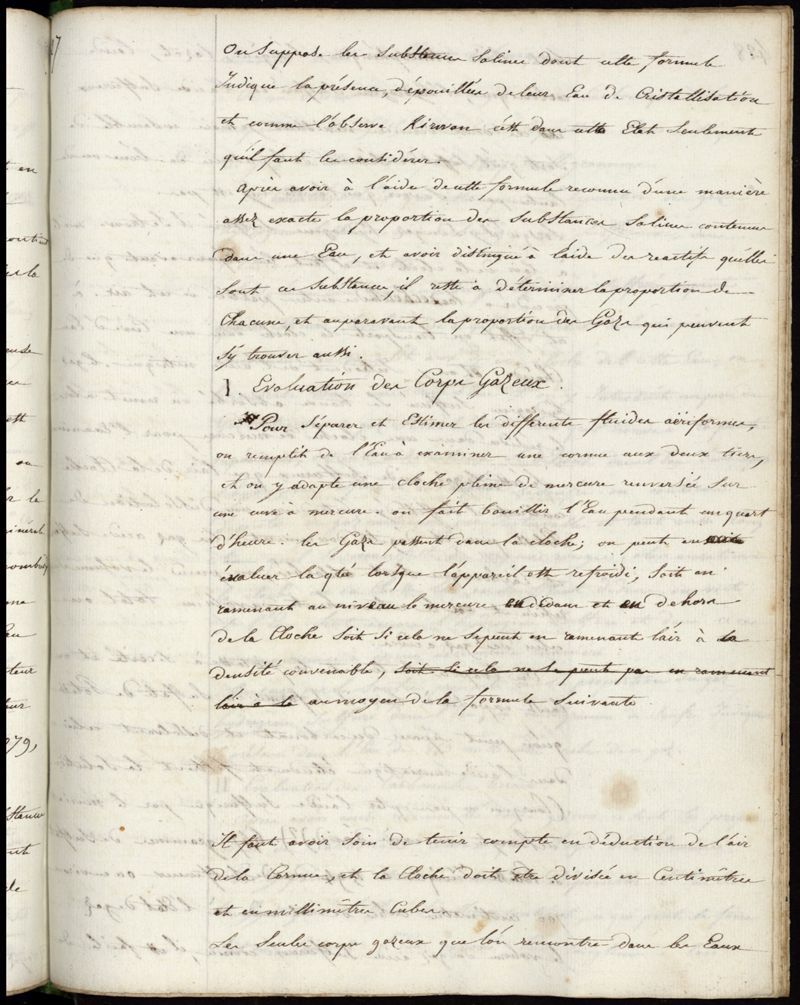 On Suppose les Substances Salines dont cette formule
Indique la présence, dépouillées de leur Eau de Cristallisation
et comme l'observe Kirwon c'est dans cette Etat Seulement
qu'il faut les considérer.
Après avoir à l'aide de cette formule reconnu d'une manière
assez exacte la proportion des Substances Salines contenues
dans une Eau, et avoir distingué à l'aide des reactifs quelles
Sont ces Substances, il reste à déterminer la proportion de
Chacune, et auparavant la proportion des Gazs qui peuvent
s'y trouver aussi.
1. Evaluation des Corps Gazeux.
Pour Séparer et Estimer les differents fluides aëriformes,
on remplit de l'Eau à examiner une cornue aux deux tiers,
et on y adapte une cloche pleine de mercure renversée Sur
une cuve à mercure. on fait bouillir l'Eau pendant un quart
d'heure. les Gazs passent dans la cloche; on peut en
évaluer la qté lorsque l'appareil est refroidi, Soit en
ramenant au niveau le mercure en dedans et en dehors
de la Cloche Soit Si cela ne Se peut en ramenant l'air à la
densité convenable, soit si cela ne se peut pas en ramenant
l'air à la au moyen de la formule Suivante
Il faut avoir Soin de tenir compte en déduction de l'air
de la Cornue, et la Cloche doit être divisée en Centimètres
et en millimètres Cubes
Les Seules corps gazeux que l'on rencontre dans les Eaux